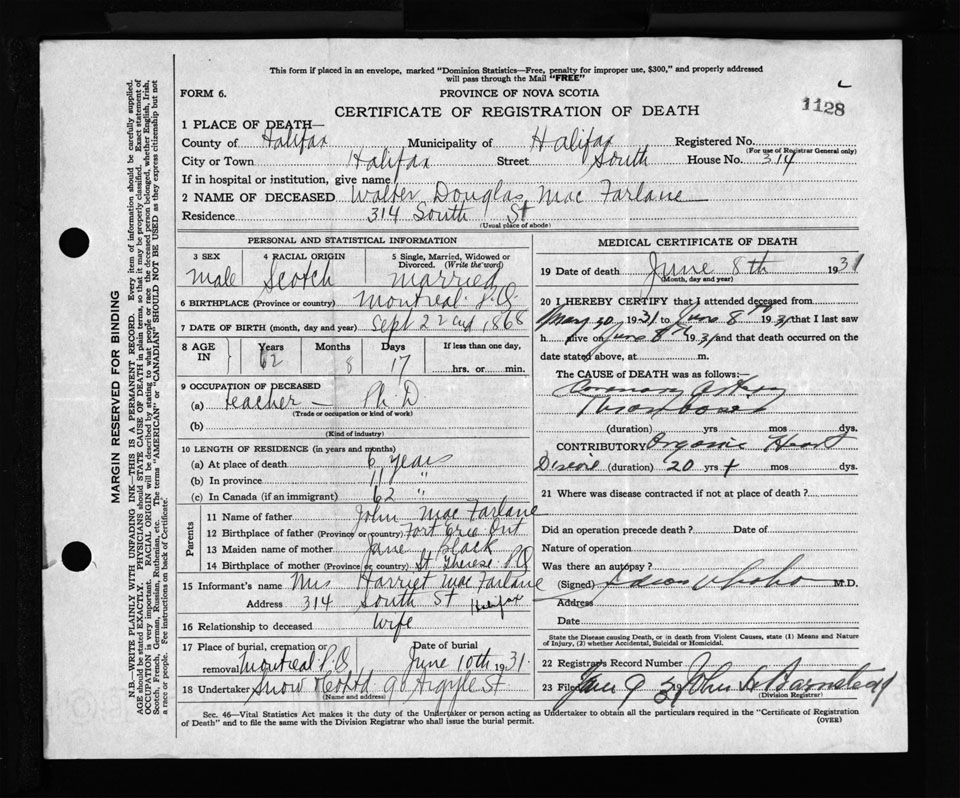 This form if placed in an envelope, marked "Dominion Statistics—Free, penalty for improper use, $300," and properly addressed
will pass through the Mail "FREE"
FORM 6.
PROVINCE OF NOVA SCOTIA
1128
CERTIFICATE OF REGISTRATION OF DEATH
1 PLACE OF DEATH—
County of Halifax Municipality of Halifax Registered No.
(For use of Registrar General only)
City or Town Halifax Street South House No. 314
If in hospital or institution, give name
2 NAME OF DECEASED Walter Douglas Mac Farlane
Residence 314 South St
(Usual place of abode)
PERSONAL AND STATISTICAL INFORMATION
3 SEX 4 RACIAL ORIGIN 5 Single, Married, Widowed or
Divorced. (Write the word)
Male Scotch Married
6 BIRTHPLACE (Province or country) Montreal P.Q.
7 DATE OF BIRTH (month, day and year) Sept 22nd 1868
8 AGE IN Years Months Days If less than one day,
62 8 17
hrs. or min.
9 OCCUPATION OF DECEASED
(a) teacher — Ph D
(Trade or occupation or kind of work)
(b)
(Kind of industry)
10 LENGTH OF RESIDENCE (in years and months)
(a) At place of death 6 years
(b) In province 11 "
(c) In Canada (if an immigrant) 62 "
Parents
11 Name of father John Mac Farlane
12 Birthplace of father (Province or country) Fort Erie Ont
13 Maiden name of mother Jane Black
14 Birthplace of mother (Province or country) St Therese P.Q
15 Informant's name Mrs Harriet Mac Farlane
Address 314 South St Halifax
16 Relationship to deceased Wife
17 Place of burial, cremation or Date of burial
removal Montreal P.Q. June 10th 1931.
18 Undertaker Snow & Co Ltd 90 Argyle St
(Name and address)
MEDICAL CERTIFICATE OF DEATH
19 Date of death June 8th 1931
(Month, day and year)
20 I HEREBY CERTIFY that I attended deceased from
May 30 1931 to June 8th 1931 that I last saw
h alive on June 8th 1931 and that death occurred on the
date stated above, at m.
The CAUSE OF DEATH was as follows:
Coronary Artery
Thrombosis
(duration) yrs mos dys.
CONTRIBUTORY Organic Heart
Disease (duration) 20 yrs + mos dys.
21 Where was disease contracted if not at place of death?
Did an operation precede death? Date of
Nature of operation
Was there an autopsy?
(Signed) M.D.
Address
Date
State the Disease causing Death, or in death from Violent Causes, state (1) Means and Nature
of Injury, (2) whether Accidental, Suicidal or Homicidal.
22 Registrar's Record Number
23 Filed June 9 31 John H Barnstead
(Division Registrar)
Sec. 46—Vital Statistics Act makes it the duty of the Undertaker or person acting as Undertaker to obtain all the particulars required in the "Certificate of Registration
of Death" and to file the same with the Division Registrar who shall issue the burial permit.
(OVER)
MARGIN RESERVED FOR BINDING
N.B.—WRITE PLAINLY WITH UNFADING INK—THIS IS A PERMANENT RECORD. Every item of information should be carefully supplied.
AGE should be stated EXACTLY. PHYSICIANS should STATE CAUSE OF DEATH in plain terms, so that it may be properly classified. Exact statement of
OCCUPATION is very important. RACIAL ORIGIN will be described by stating to what people or race the deceased person belonged, whether English, Irish,
Scotch, French, German, Russian, Ruthenian, etc. The terms "AMERICAN" or "CANADIAN" SHOULD NOT BE USED as they express citizenship but not
a race or people. Fee instructions on back of Certificate.